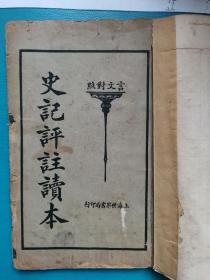 言文對照
史記評註讀本
上海世界書局印行